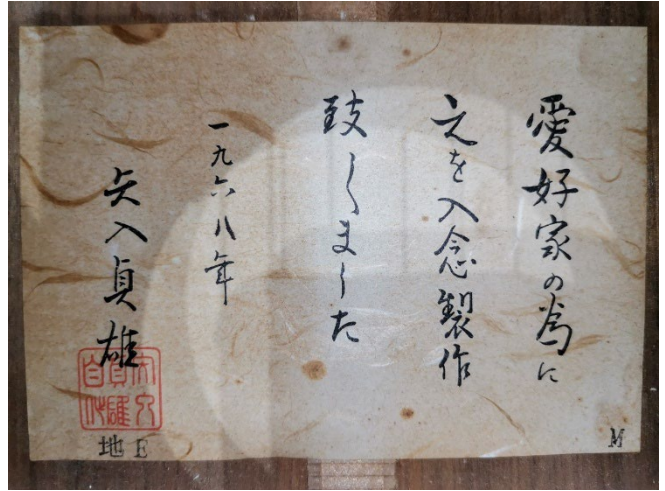 愛好家の為に
之を入念製作
致しました
一九六八年
矢入貞雄
地E
M